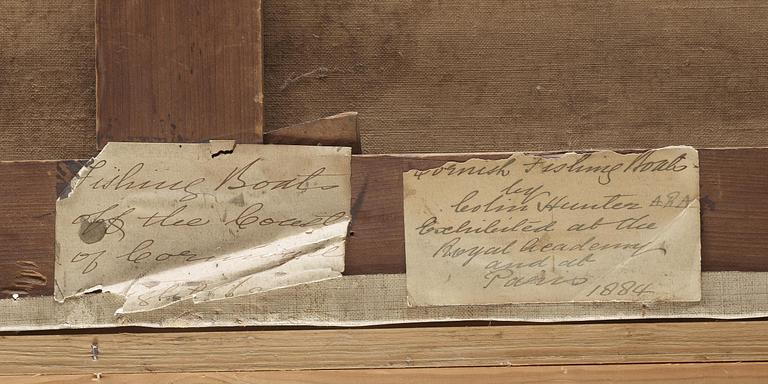 Fishing Boats
off the Coast
of
Cornish Fishing Boats
by
Colin Hunter ARA
Exhibited at the
Royal Academy
and at
Paris
1884